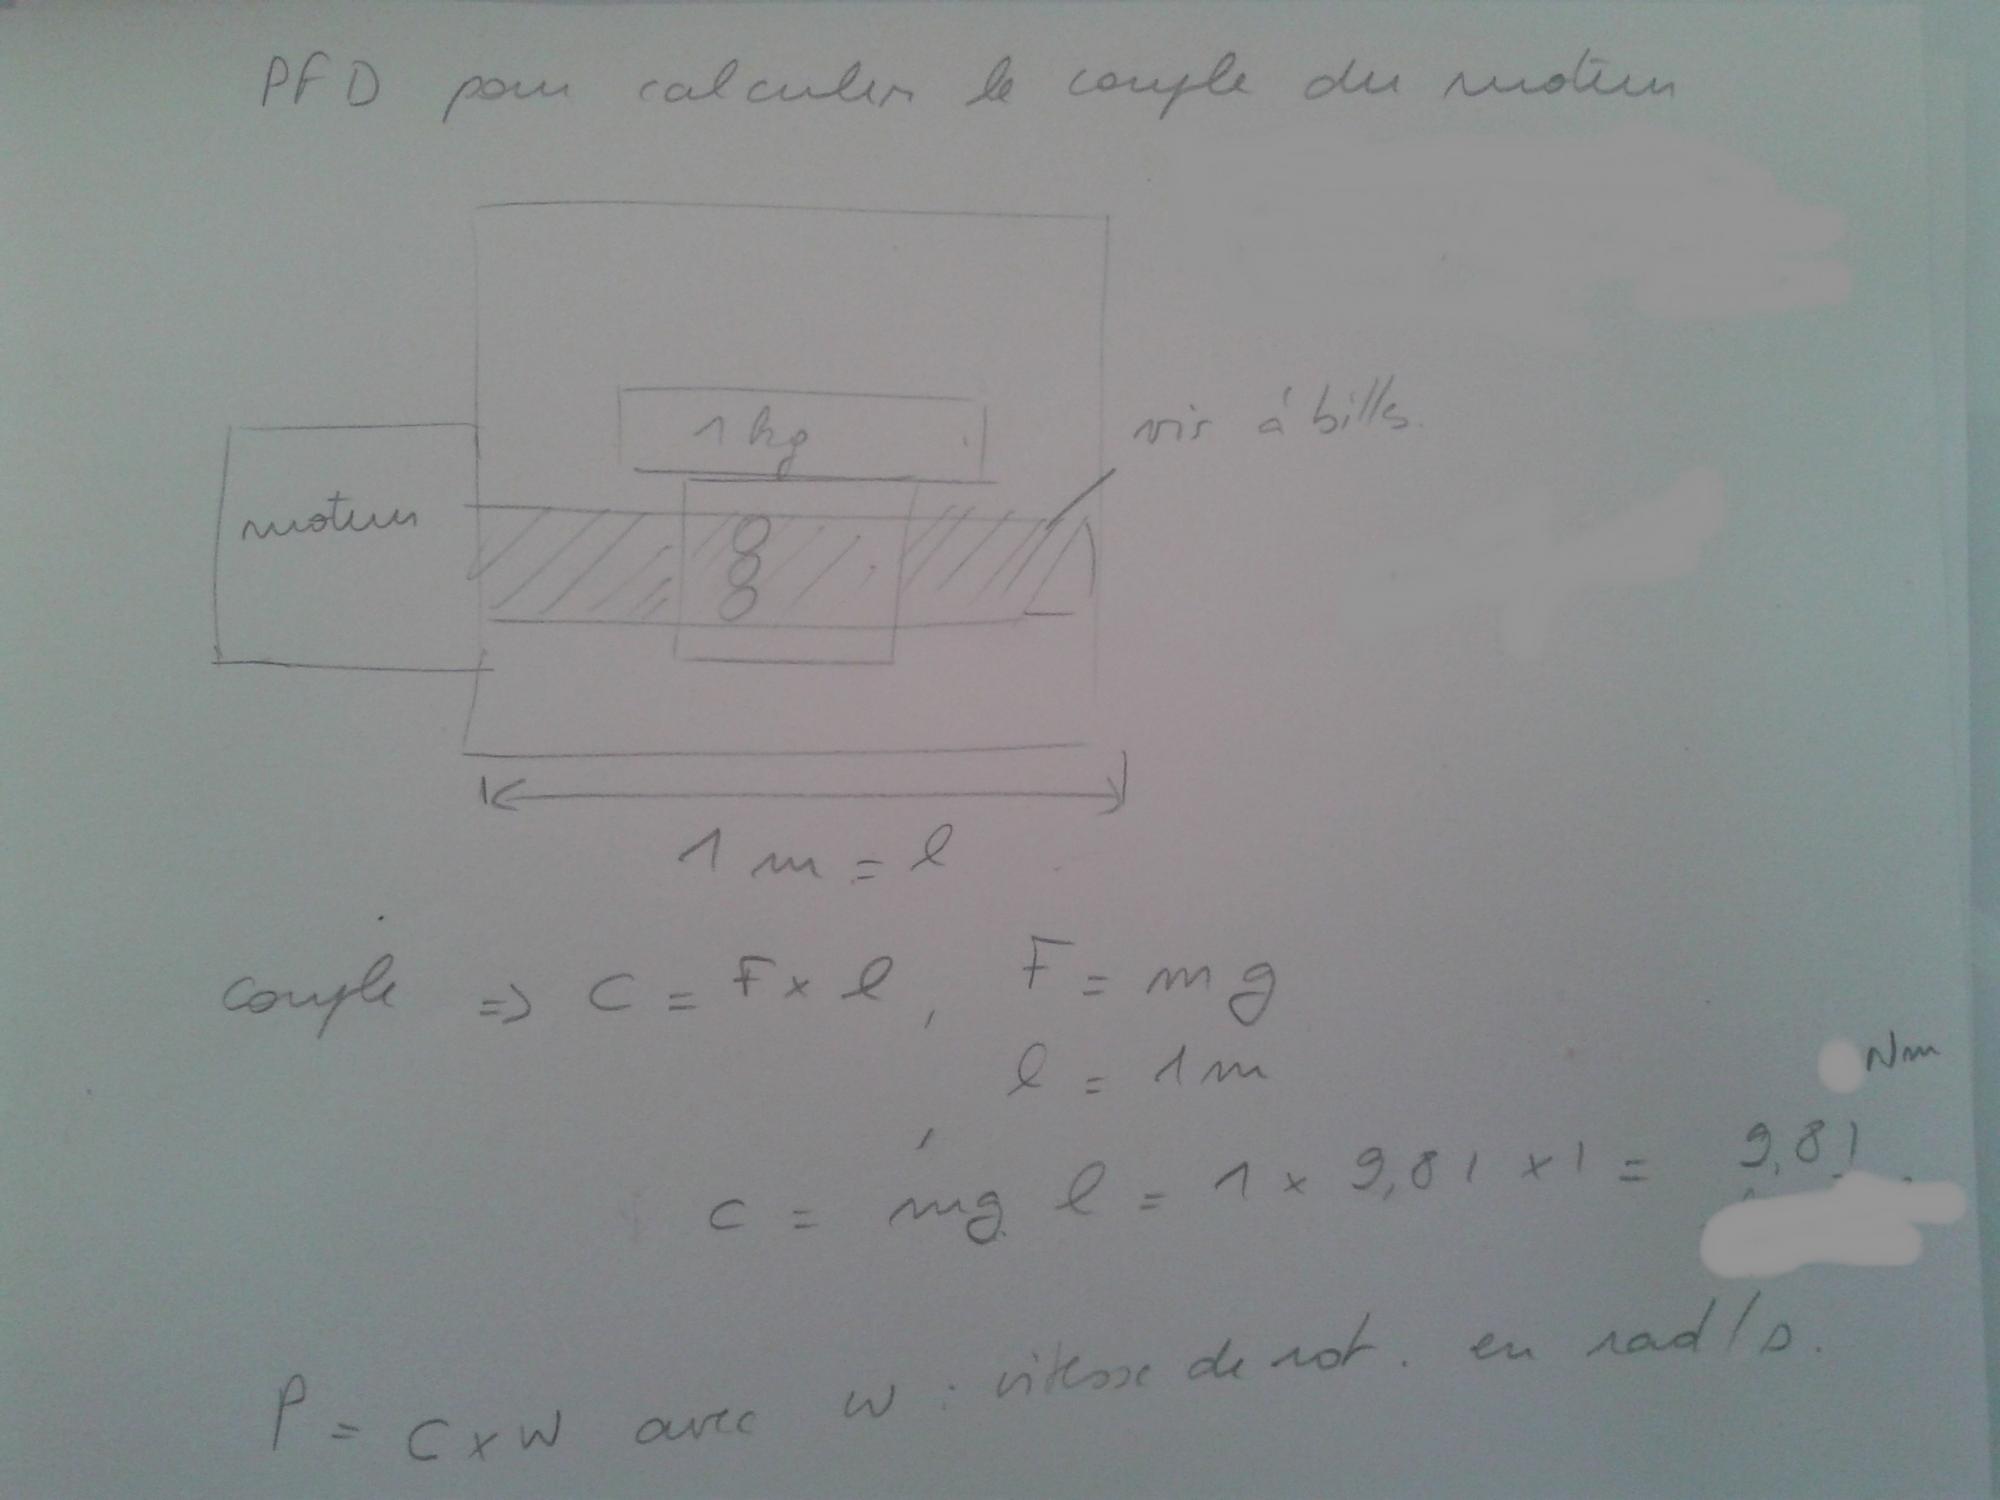 PFD pour calculer le couple du moteur
1 kg
vis à billes.
moteur
1 m = l
couple => C = F x l, F = mg
l = 1m
Nm
C = mg l = 1 x 9,81 x 1 = 9,81
P = C x W avec W : vitesse de rot. en rad/s.